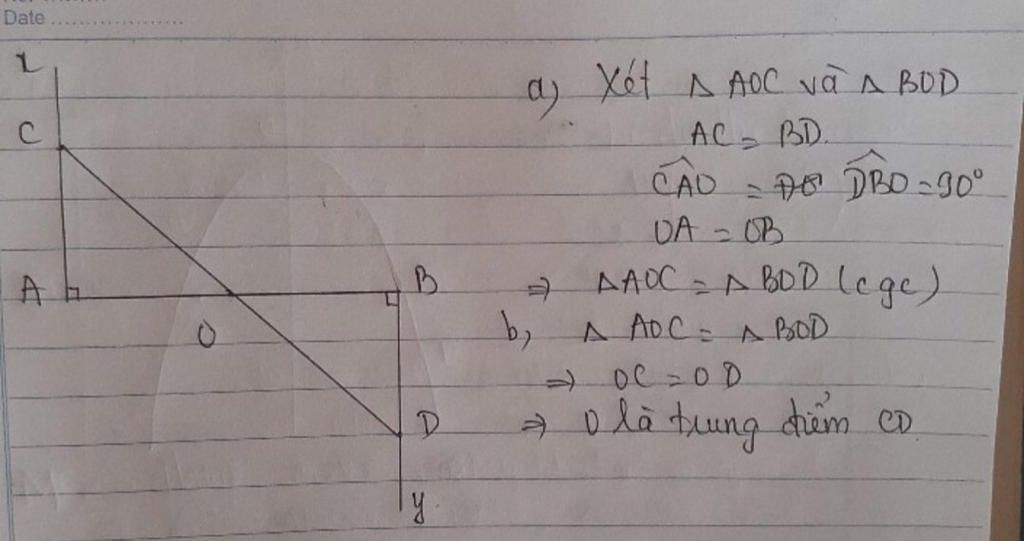 Date ....................
x
C
A
O
B
D
y
a) Xét Δ AOC và Δ BOD
AC = BD.
\widehat{CAO} = \widehat{DBO} = 90°
OA = OB
⇒ Δ AOC = Δ BOD (cgc)
b, Δ AOC = Δ BOD
⇒ OC = OD
⇒ O là trung điểm CD